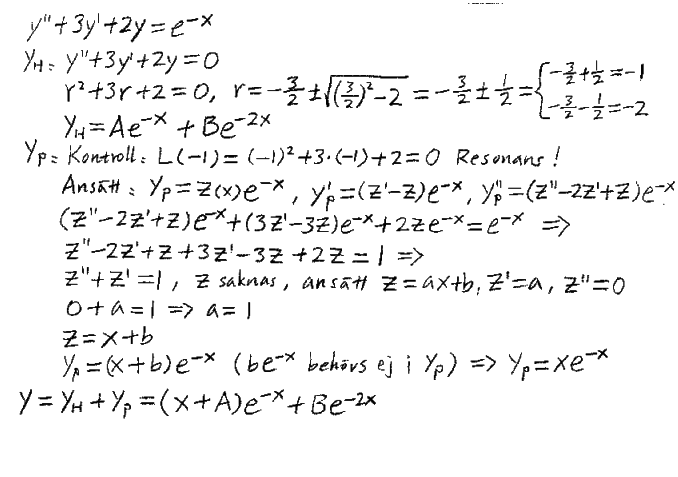 y''+3y'+2y=e^-x
y_H: y''+3y'+2y=0
r²+3r+2=0, r=-3/2±√((3/2)²-2)=-3/2±1/2={-3/2+1/2=-1 -3/2-1/2=-2
y_H=Ae^-x+Be^-2x
y_p: Kontroll: L(-1)=(-1)²+3·(-1)+2=0 Resonans!
Ansätt: y_p=z(x)e^-x, y_p'=(z'-z)e^-x, y_p''=(z''-2z'+z)e^-x
(z''-2z'+z)e^-x+(3z'-3z)e^-x+2ze^-x=e^-x =>
z''-2z'+z+3z'-3z+2z=1 =>
z''+z'=1, z saknas, ansätt z=ax+b, z'=a, z''=0
0+a=1 => a=1
z=x+b
y_p=(x+b)e^-x (be^-x behövs ej i y_p) => y_p=xe^-x
y=y_H+y_p=(x+A)e^-x+Be^-2x